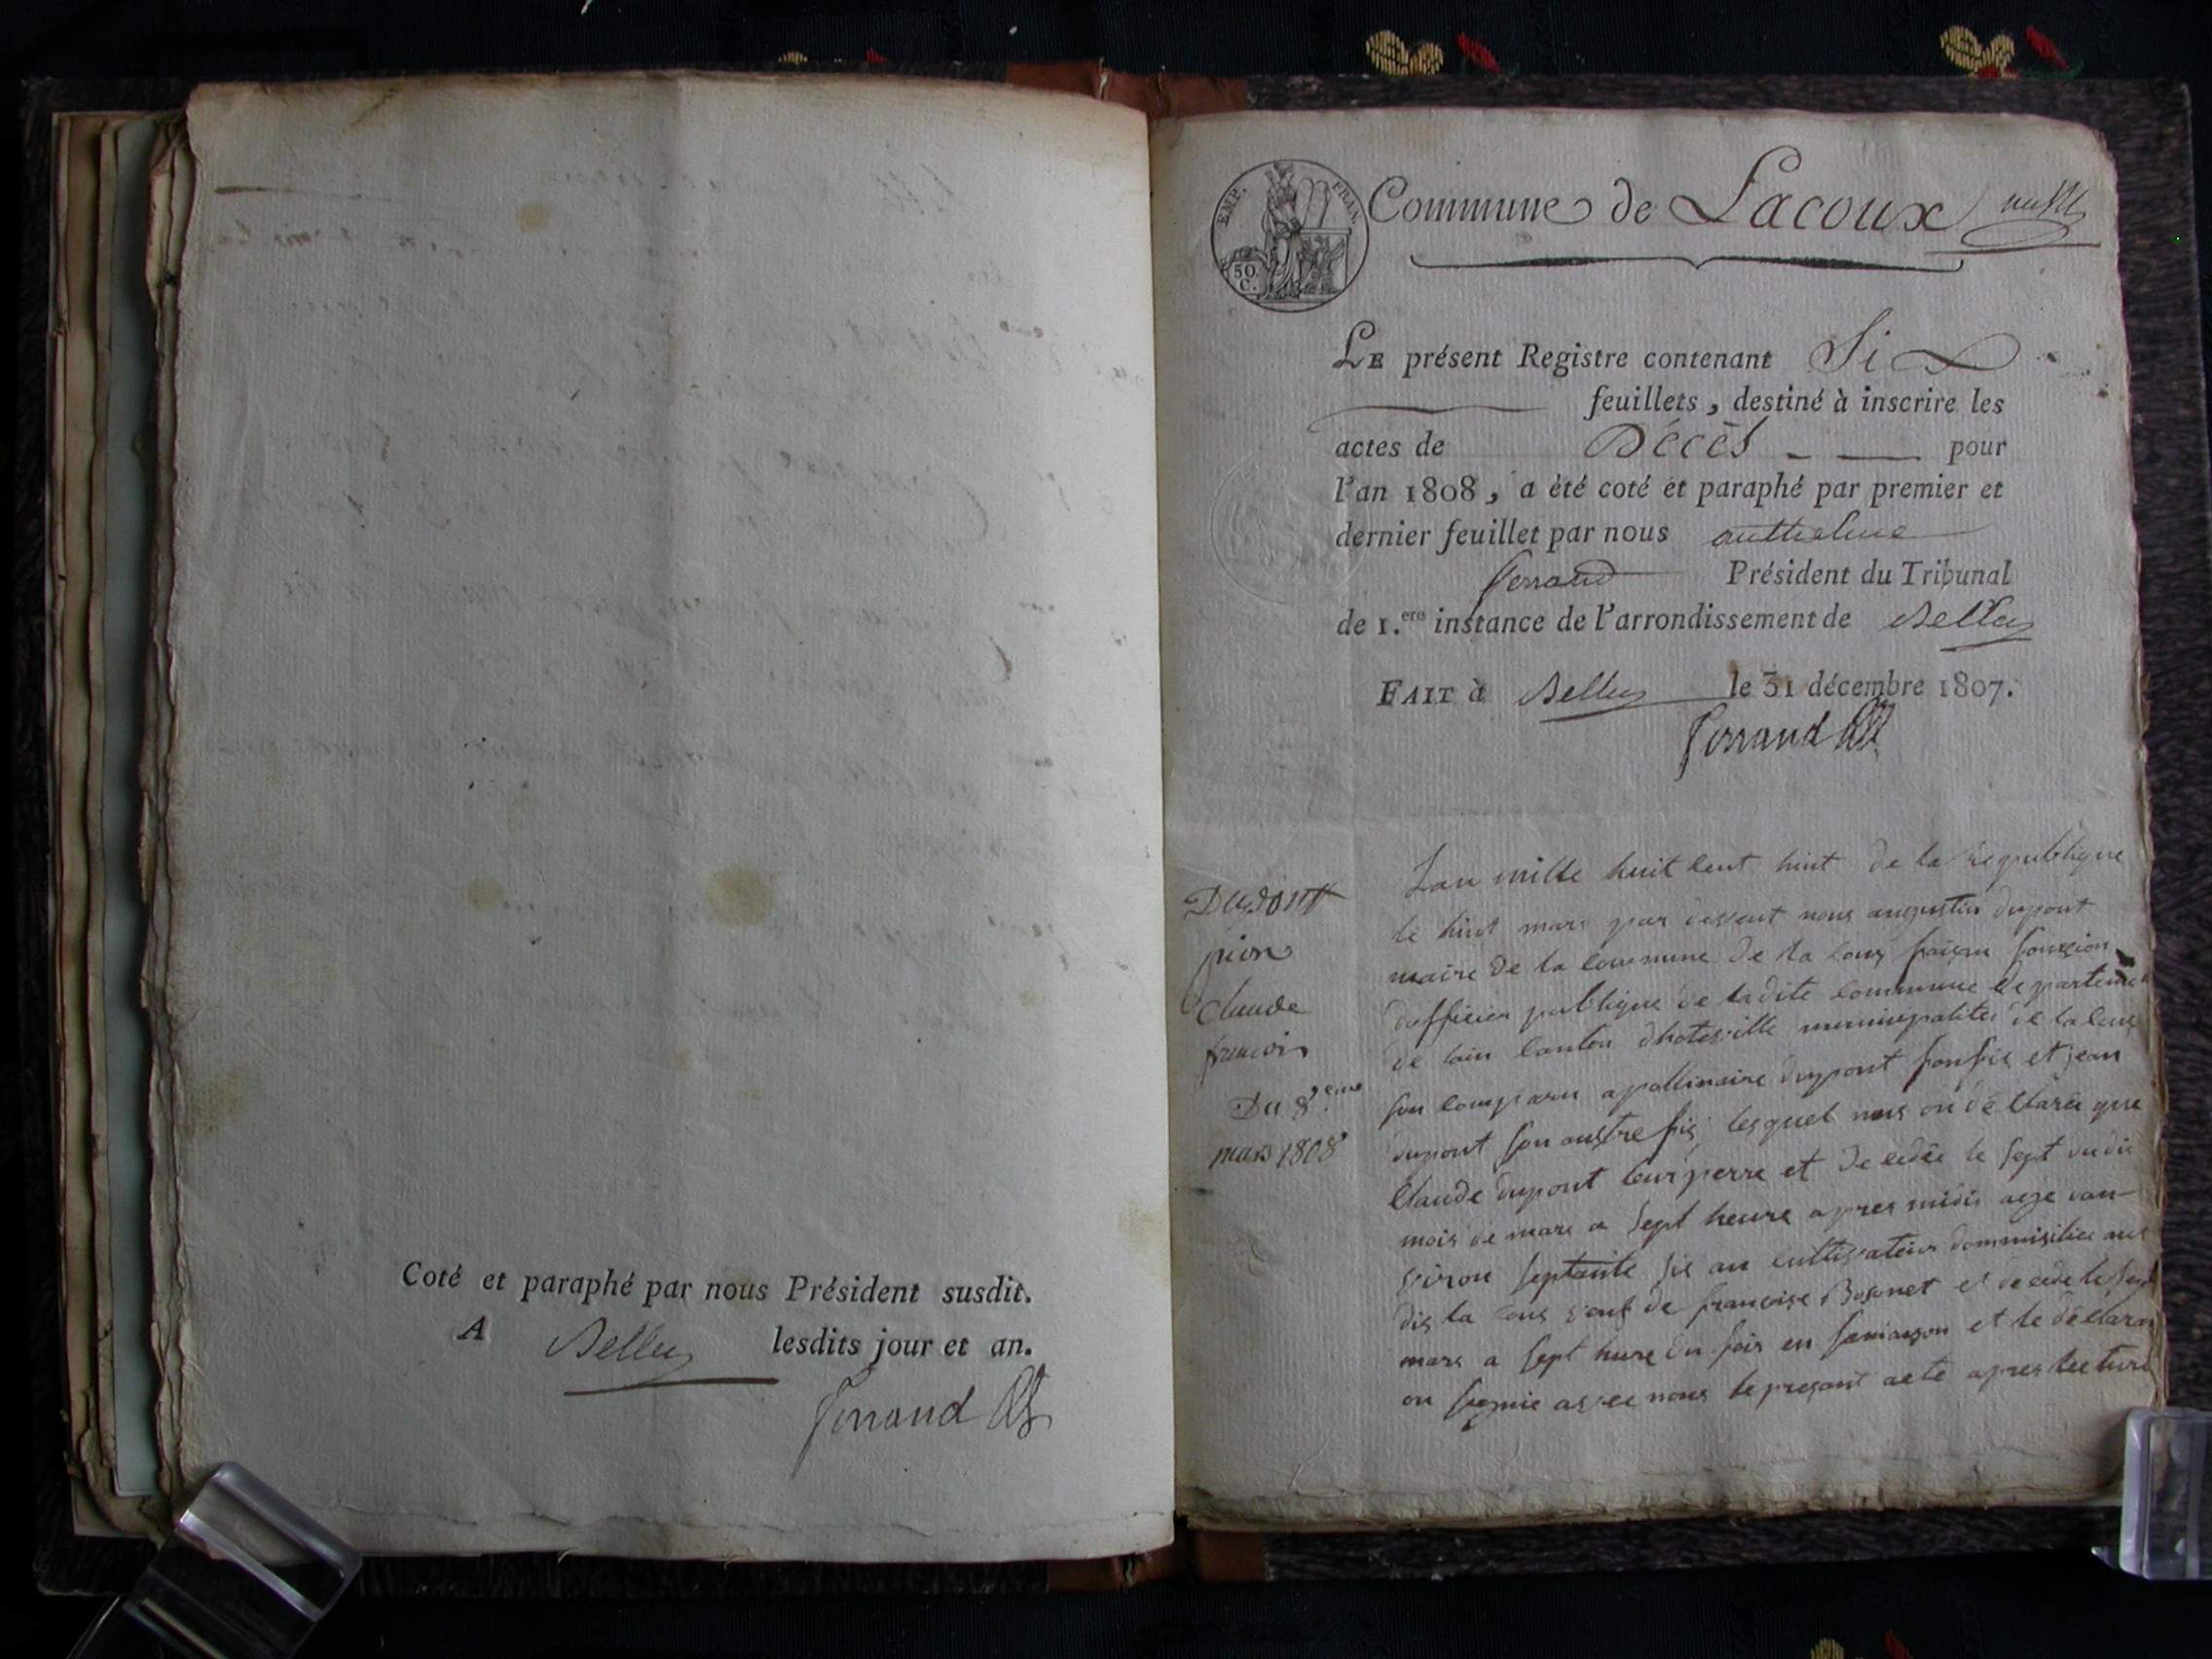 Coté et paraphé par nous Président susdit.
A Belley lesdits jour et an.
Ferrand
EMP. FRAN.
50
C.
Commune de Lacoux
LE présent Registre contenant Six
feuillets, destiné à inscrire les
actes de Décès pour
l'an 1808, a été coté et paraphé par premier et
dernier feuillet par nous anthelme
ferrand Président du Tribunal
de 1.ere instance de l'arrondissement de Belley
FAIT à Belley le 31 décembre 1807.
Ferrand
Dupont
claude
francois
Du 8.eme
mars 1808
Lan mille huit cent huit de la republique
le huit mars par devent nous augustin dupont
maire de la commune de la cous faisan fonxion
dofficier publique de ladite commune departement
de lain canton dhoteville municipalitee de lacous
son comparu apollinaire dupont son fis et jean
dupont son austre fis lesquel nous on déclarée que
Claude dupont leur perre et decedée le sept dudis
mois de mars a sept heure apres midis age van-
viron septante sis an cultivateur dommisiliee au
dis la cous veuf de francoise Bosonet et decede le sept
mars a sept hure du soir en sa maison et le déclaran
on signie avec nous le presant acte apres lecture